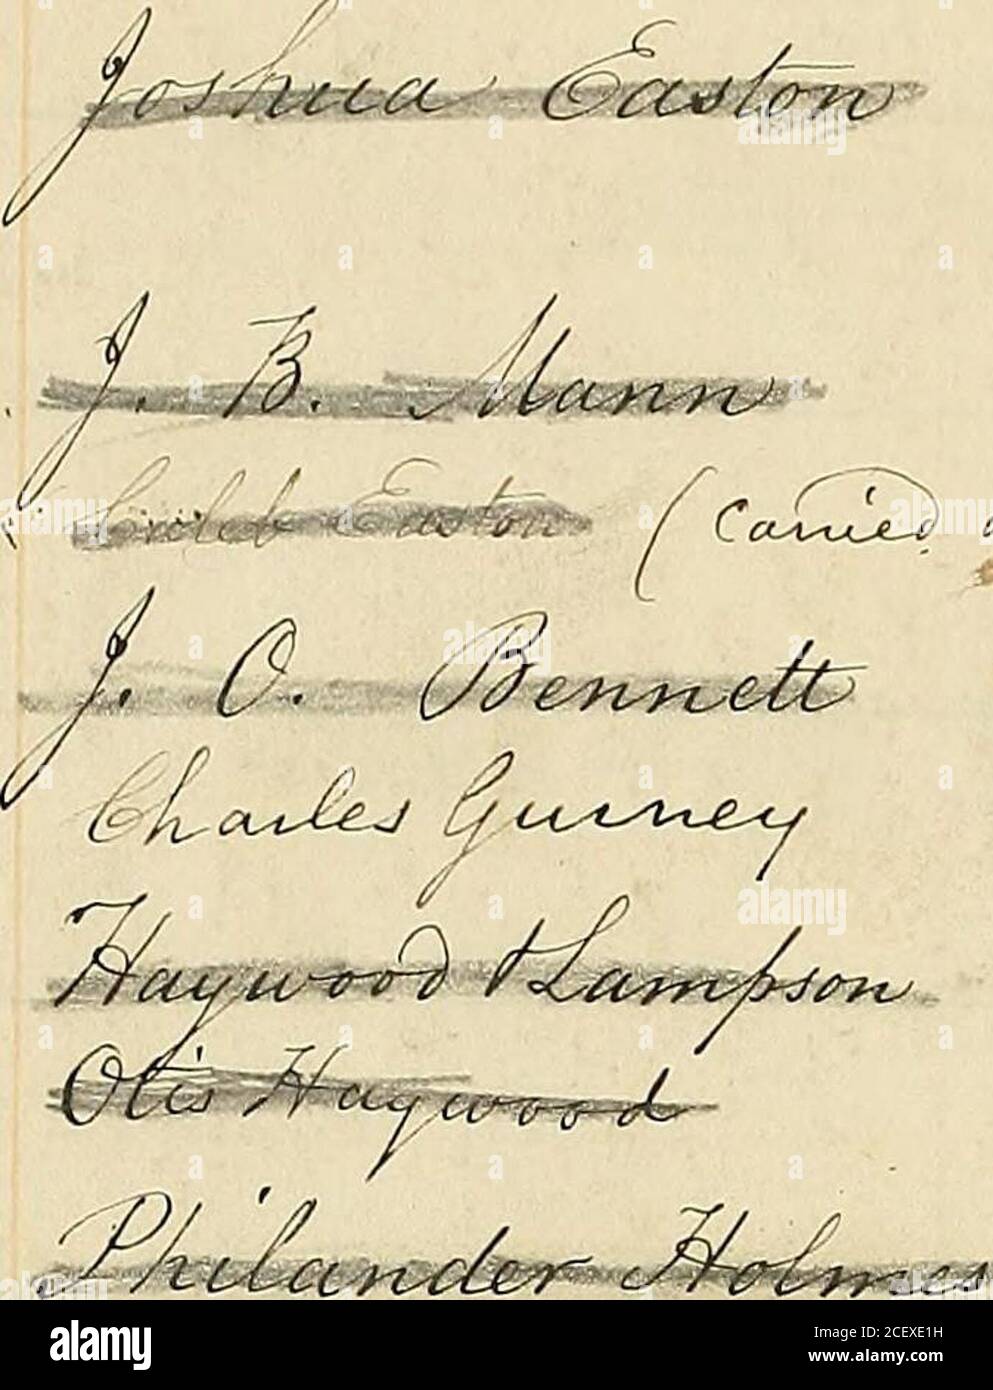 Joshua Easton
J. B. Mann
Caleb Easton (Carried
J. O. Bennett
Charles Gurney
Haywood & Lampson
Otis Haywood
Philander Holmes
alamy
Image ID: 2CEXE1H
www.alamy.com